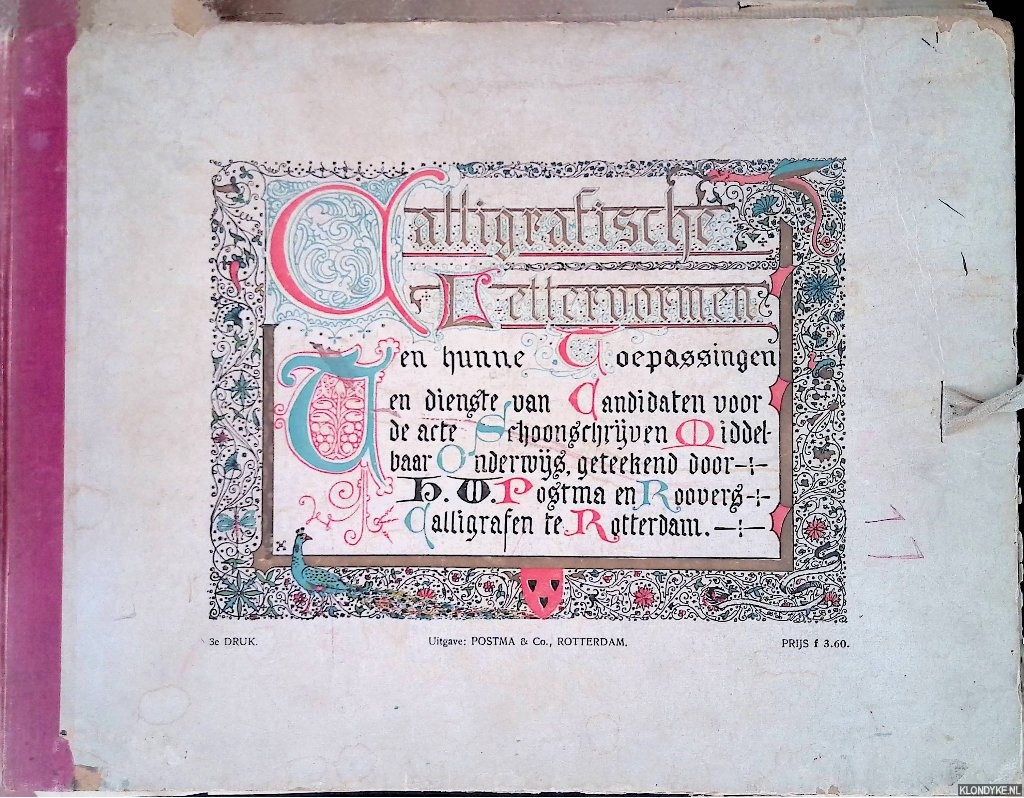 Calligrafische
Letternormen
en hunne Toepassingen
Ten dienste van Candidaten voor
de acte Schoonschrijven Middel-
baar Onderwijs, geteekend door
H. W. Postma en Roovers
Calligrafen te Rotterdam.
3e DRUK.
Uitgave: POSTMA & Co., ROTTERDAM.
PRIJS f 3.60.
KLONDYKE.NL